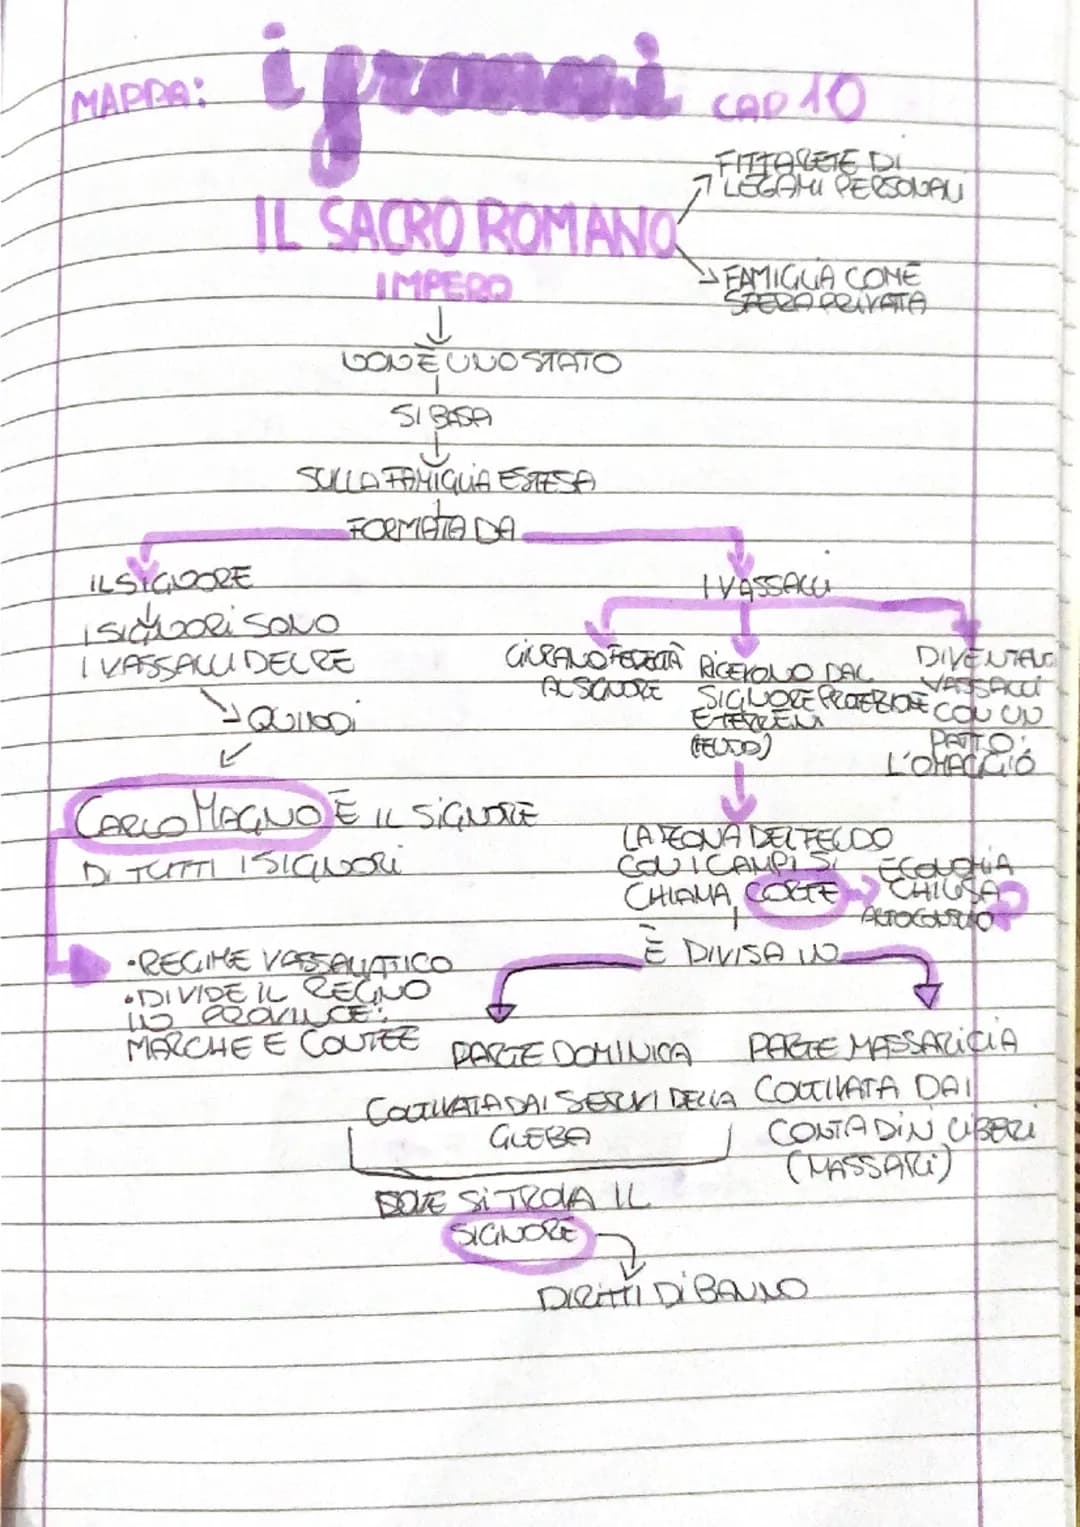 MAPPA: i granai CAP 10
FITTA RETE DI
LEGAMI PERSONALI
IL SACRO ROMANO
IMPERO
FAMIGLIA COME
SFERA PRIVATA
NON È UNO STATO
SI BASA
SULLA FAMIGLIA ESTESA
FORMATA DA
IL SIGNORE
I SIGNORI SONO
I VASSALLI DEL RE
QUINDI
CARLO MAGNO È IL SIGNORE
DI TUTTI I SIGNORI
•REGIME VASSALLATICO
•DIVIDE IL REGNO
IN PROVINCE:
MARCHE E CONTEE
I VASSALLI
GIURANO FEDELTÀ
AL SIGNORE
RICEVONO DAL
SIGNORE PROTEZIONE
E TERRENI
(FEUDO)
DIVENTANO
VASSALLI
CON UN
PATTO:
L'OMAGGIO
LA ZONA DEL FEUDO
CON I CAMPI SI
CHIAMA CORTE
ECONOMIA
CHIUSA
AUTOCONSUMO
È DIVISA IN
PARTE DOMINICA
COLTIVATA DAI SERVI DELLA
GLEBA
DOVE SI TROVA IL
SIGNORE
DIRITTI DI BANNO
PARTE MASSARICIA
COLTIVATA DAI
CONTADINI LIBERI
(MASSARI)